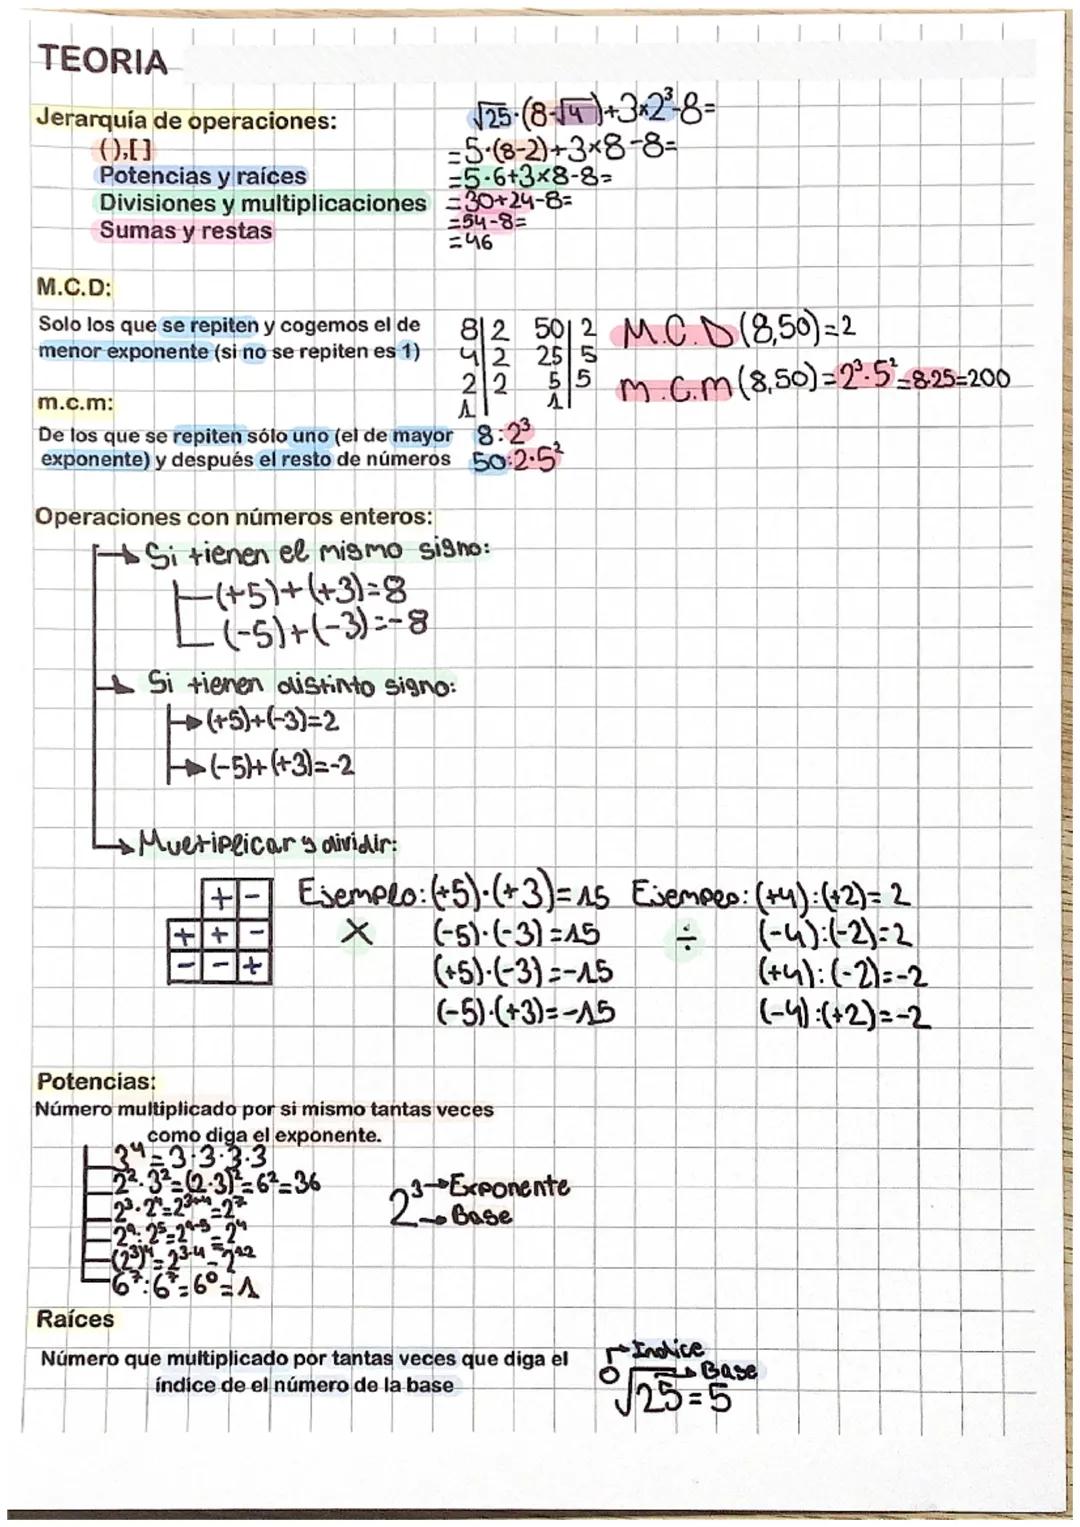 TEORIA
Jerarquía de operaciones:
( ),[ ]
Potencias y raíces
Divisiones y multiplicaciones
Sumas y restas
√25·(8-√4)+3×2³-8=
=5·(8-2)+3×8-8=
=5·6+3×8-8=
=30+24-8=
=54-8=
=46
M.C.D:
Solo los que se repiten y cogemos el de
menor exponente (si no se repiten es 1)
m.c.m:
De los que se repiten sólo uno (el de mayor
exponente) y después el resto de números
8|2 50|2
4|2 25|5
2|2 5|5
1| 1|
8:2³
50:2·5²
M.C.D(8,50)=2
m.c.m(8,50)=2³·5²=8·25=200
Operaciones con números enteros:
Si tienen el mismo signo:
(+5)+(+3)=8
(-5)+(-3)=-8
Si tienen distinto signo:
(+5)+(-3)=2
(-5)+(+3)=-2
Multiplicar y dividir:
+ -
+ + -
- - +
Ejemplo:(+5)·(+3)=15
× (-5)·(-3)=15
(+5)·(-3)=-15
(-5)·(+3)=-15
Ejemplo:(+4):(+2)=2
÷ (-4):(-2)=2
(+4):(-2)=-2
(-4):(+2)=-2
Potencias:
Número multiplicado por si mismo tantas veces
como diga el exponente.
3⁴=3·3·3·3
2²·3²=(2·3)²=6²=36
2³·2⁴=2³⁺⁴=2⁷
2⁹:2⁵=2⁹⁻⁵=2⁴
(2³)⁴=2³·⁴=2¹²
6⁷:6⁷=6⁰=1
2³→Exponente
→Base
Raíces
Número que multiplicado por tantas veces que diga el
índice de el número de la base
Indice
Base
√25=5